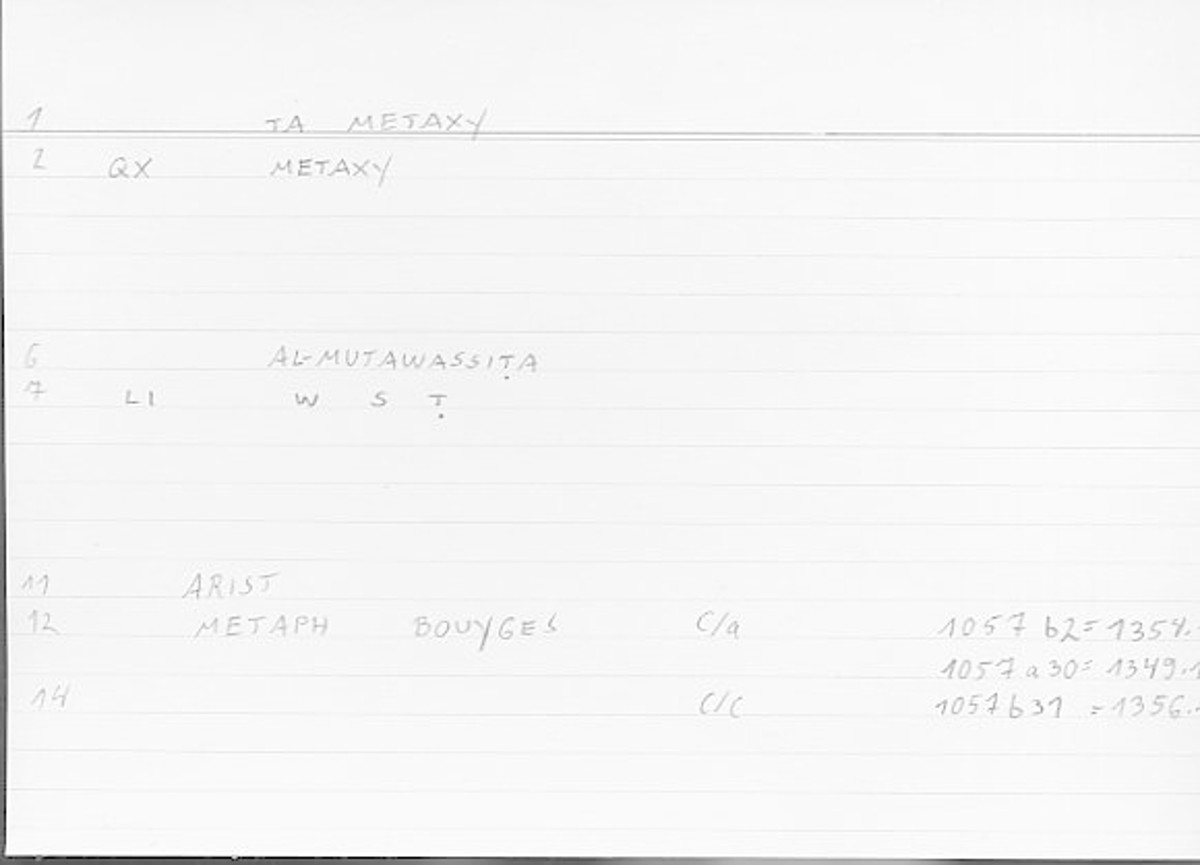 1 TA METAXY
2 QX METAXY
6 AL-MUTAWASSIṬA
7 LI W S Ṭ
11 ARIST
12 METAPH BOUYGES C/a 1057 b2=1354.
1057 a 30=1349.1
14 C/C 1057 b31 =1356.